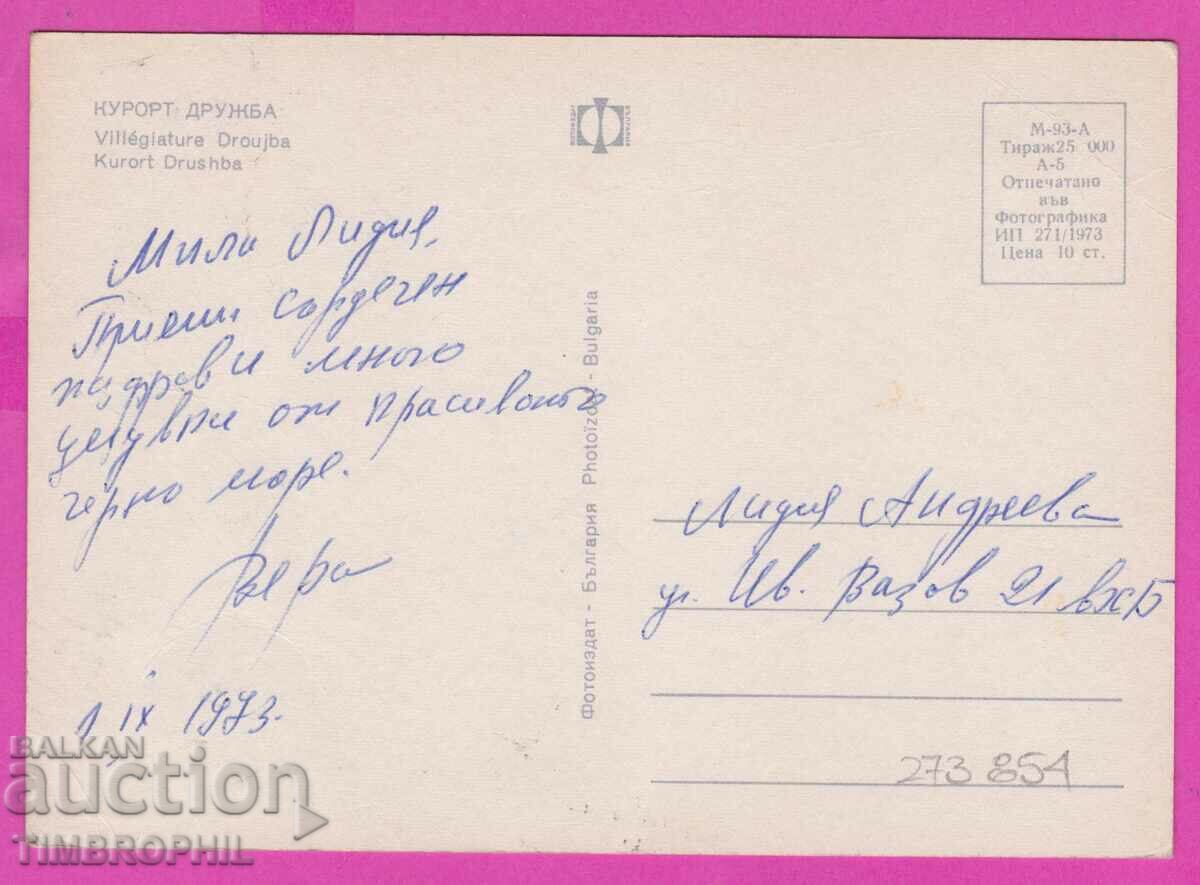 КУРОРТ ДРУЖБА
Villégiature Droujba
Kurort Drushba
ФОТОИЗДАТ
БЪЛГАРИЯ
М-93-А
Тираж25 000
А-5
Отпечатано
във
Фотографика
ИП 271/1973
Цена 10 ст.
Мила Лидия,
Приеми сърдечен
поздрав и много
целувки от красивото
черно море.
Вера
1 IX 1973.
Фотоиздат - България Photoizdat - Bulgaria
Лидия Андреева
ул. Ив. Вазов 21 вх Б
273 854
BALKAN
auction
TIMBROPHIL